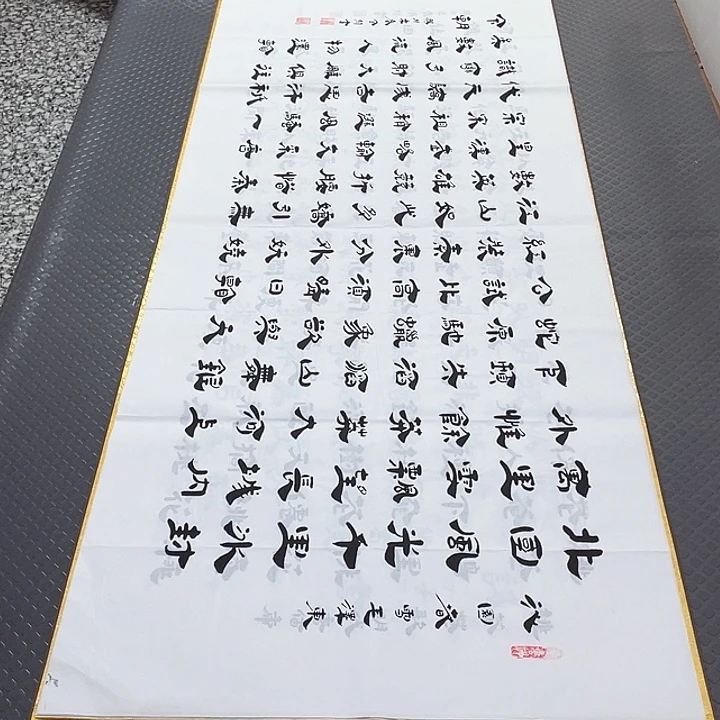 沁園春 雪 毛澤東
北國風光千里冰封
萬里雪飄望長城內
外惟餘莽莽大河上
下頓失滔滔山舞銀
蛇原馳蠟象欲與天
公試比高須晴日看
紅裝素裹分外妖嬈
江山如此多嬌引無
數英雄競折腰惜秦
皇漢武略輸文采唐
宗宋祖稍遜風騷一
代天驕成吉思汗衹
識彎弓射大雕俱往
矣數風流人物還看
今朝